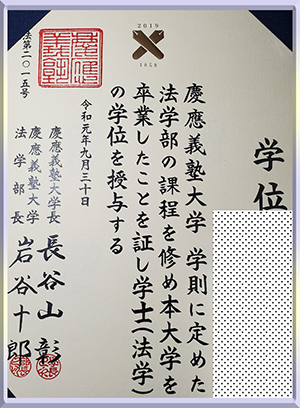 学位
慶應義塾大学 学則に定めた
法学部の課程を修め本大学を
卒業したことを証し学士(法学)
の学位を授与する
令和元年九月三十日
慶應義塾大学長 長谷山 彰
慶應義塾大学
法学部長 岩谷十郎
法第二〇一五号
2019